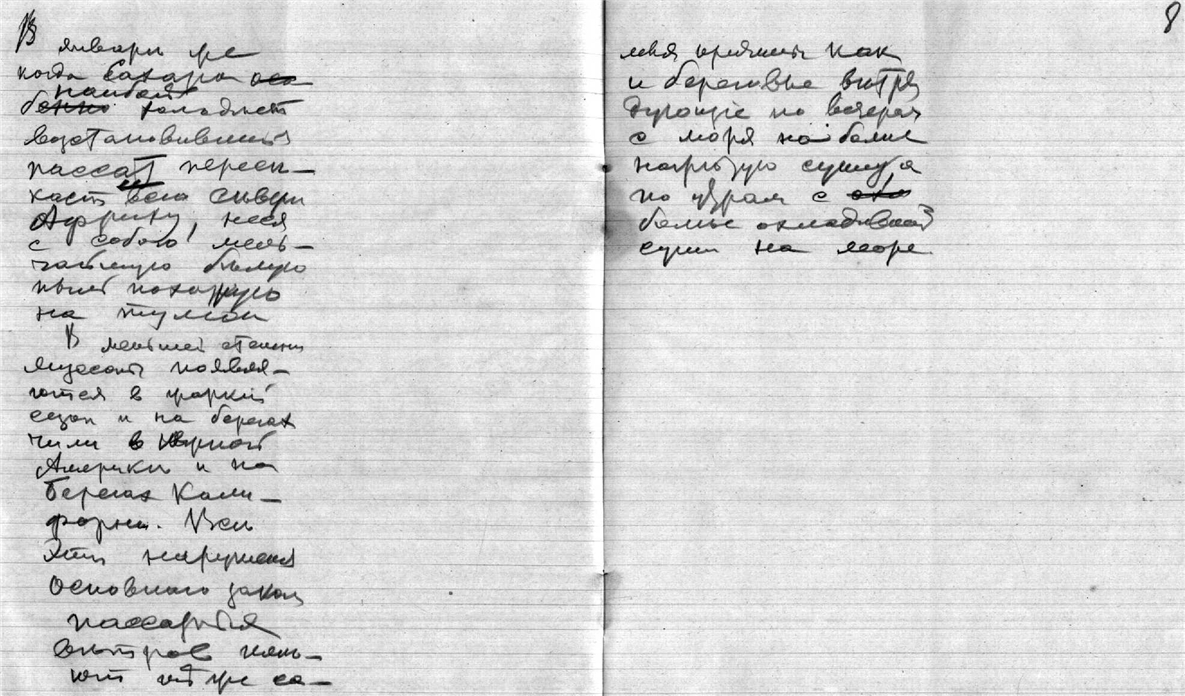 В январе же
когда Сахара осо
наиболее
бенно холоднеет
возстановившийся
пассат пересе-
кает всю Северн
Африку, неся
с собою мель-
чайшую белую
пыль похожую
на туман
В меньшей степени
муссоны появля-
ются в жаркий
сезон и на берегах
Чили в Южной
Америки и на
берегах Кали-
форни. Все
эти нарушения
основного закона
пассатныя
ветров имею-
ют те же са-
мыя причины как
и береговые ветры
дующие по вечерам
с моря на более
нагретую сушу а
по утрам с
более охладевшей
суши на море
8